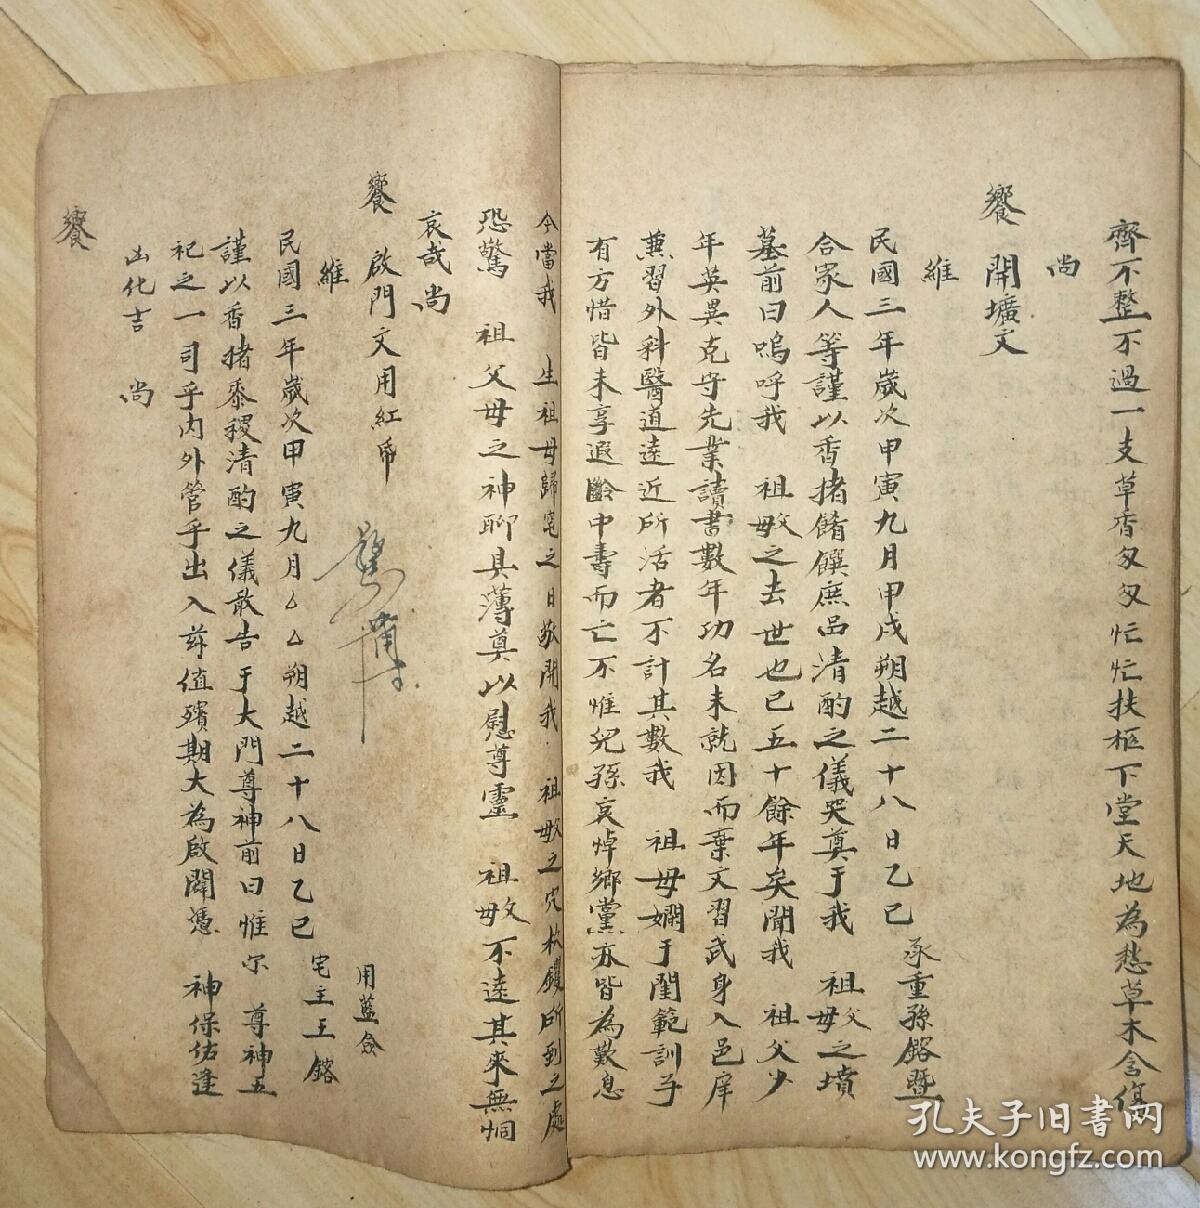 齊不整不過一支草香匆匆忙忙扶柩下堂天地為愁草木含傷
尚
饗 開壙文
維
民國三年歲次甲寅九月甲戌朔越二十八日乙巳 承重孫鎔暨
合家人等謹以香猪餚饌庶品清酌之儀哭奠于我 祖父母之墳
墓前曰嗚呼我 祖父母之去世也已五十餘年矣聞我 祖父少
年英異克守先業讀書數年功名未就因而棄文習武身入邑庠
兼習外科醫道遠近所活者不計其數我 祖母嫻于閨範訓子
有方惜皆未享遐齡中壽而亡不惟兒孫哀悼鄉黨亦皆為歎息
今當我 生祖母歸窀之日敬開我 祖父母之穴杴钁所到之處
恐驚 祖父母之神聊具薄奠以慰尊靈 祖父母不遠其來無恫
哀哉尚
饗 啟門文用紅帋 用藍僉
維
民國三年歲次甲寅九月厶厶朔越二十八日乙巳 宅主王鎔
謹以香猪黍稷清酌之儀敢告于大門尊神前曰惟尔 尊神五
祀之一司乎內外管乎出入茲值殯期大為啟闢憑 神保佑逢
凶化吉 尚
饗
孔夫子旧书网
www.kongfz.com